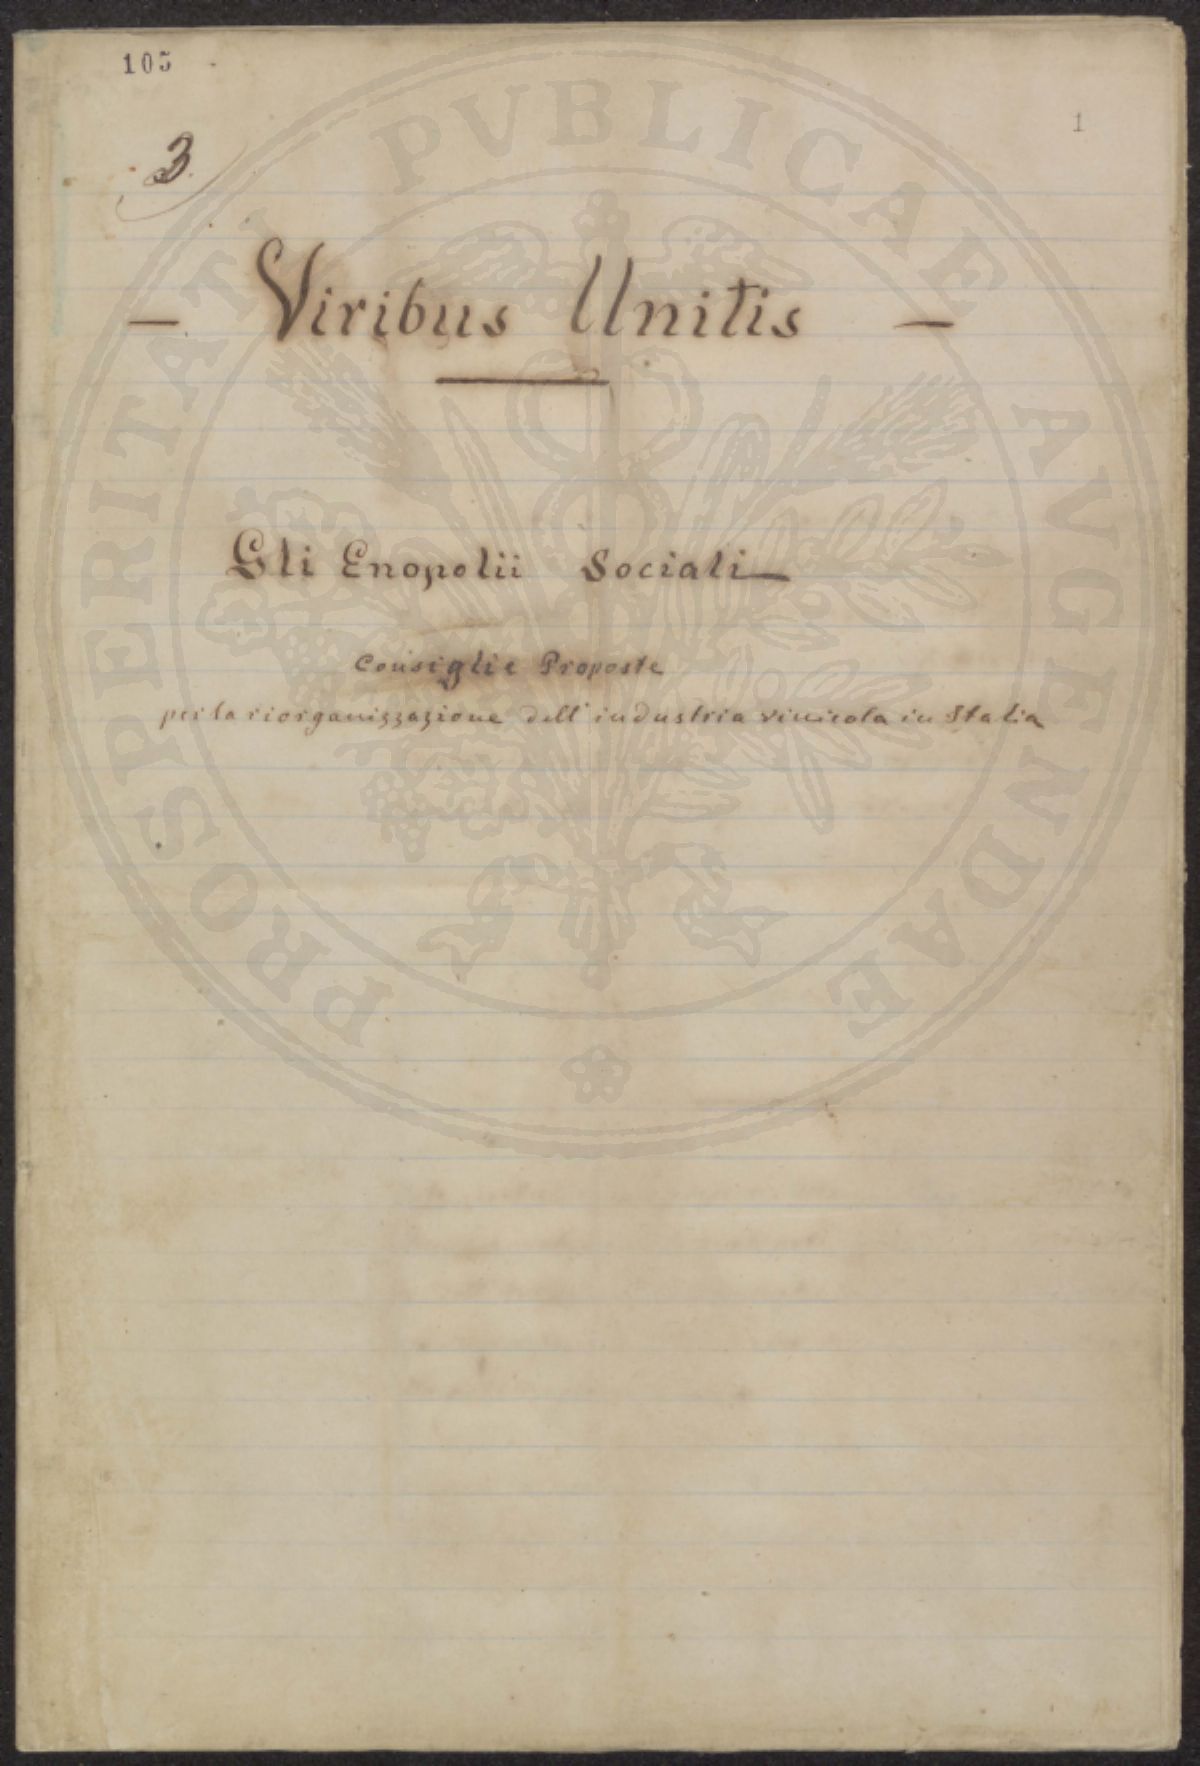 105
1
3
– Viribus Unitis –
Gli Enopolii Sociali
Consigli e Proposte
per la riorganizzazione dell'industria vinicola in Italia
PROSPERITATI PVBLICAE AVGENDAE